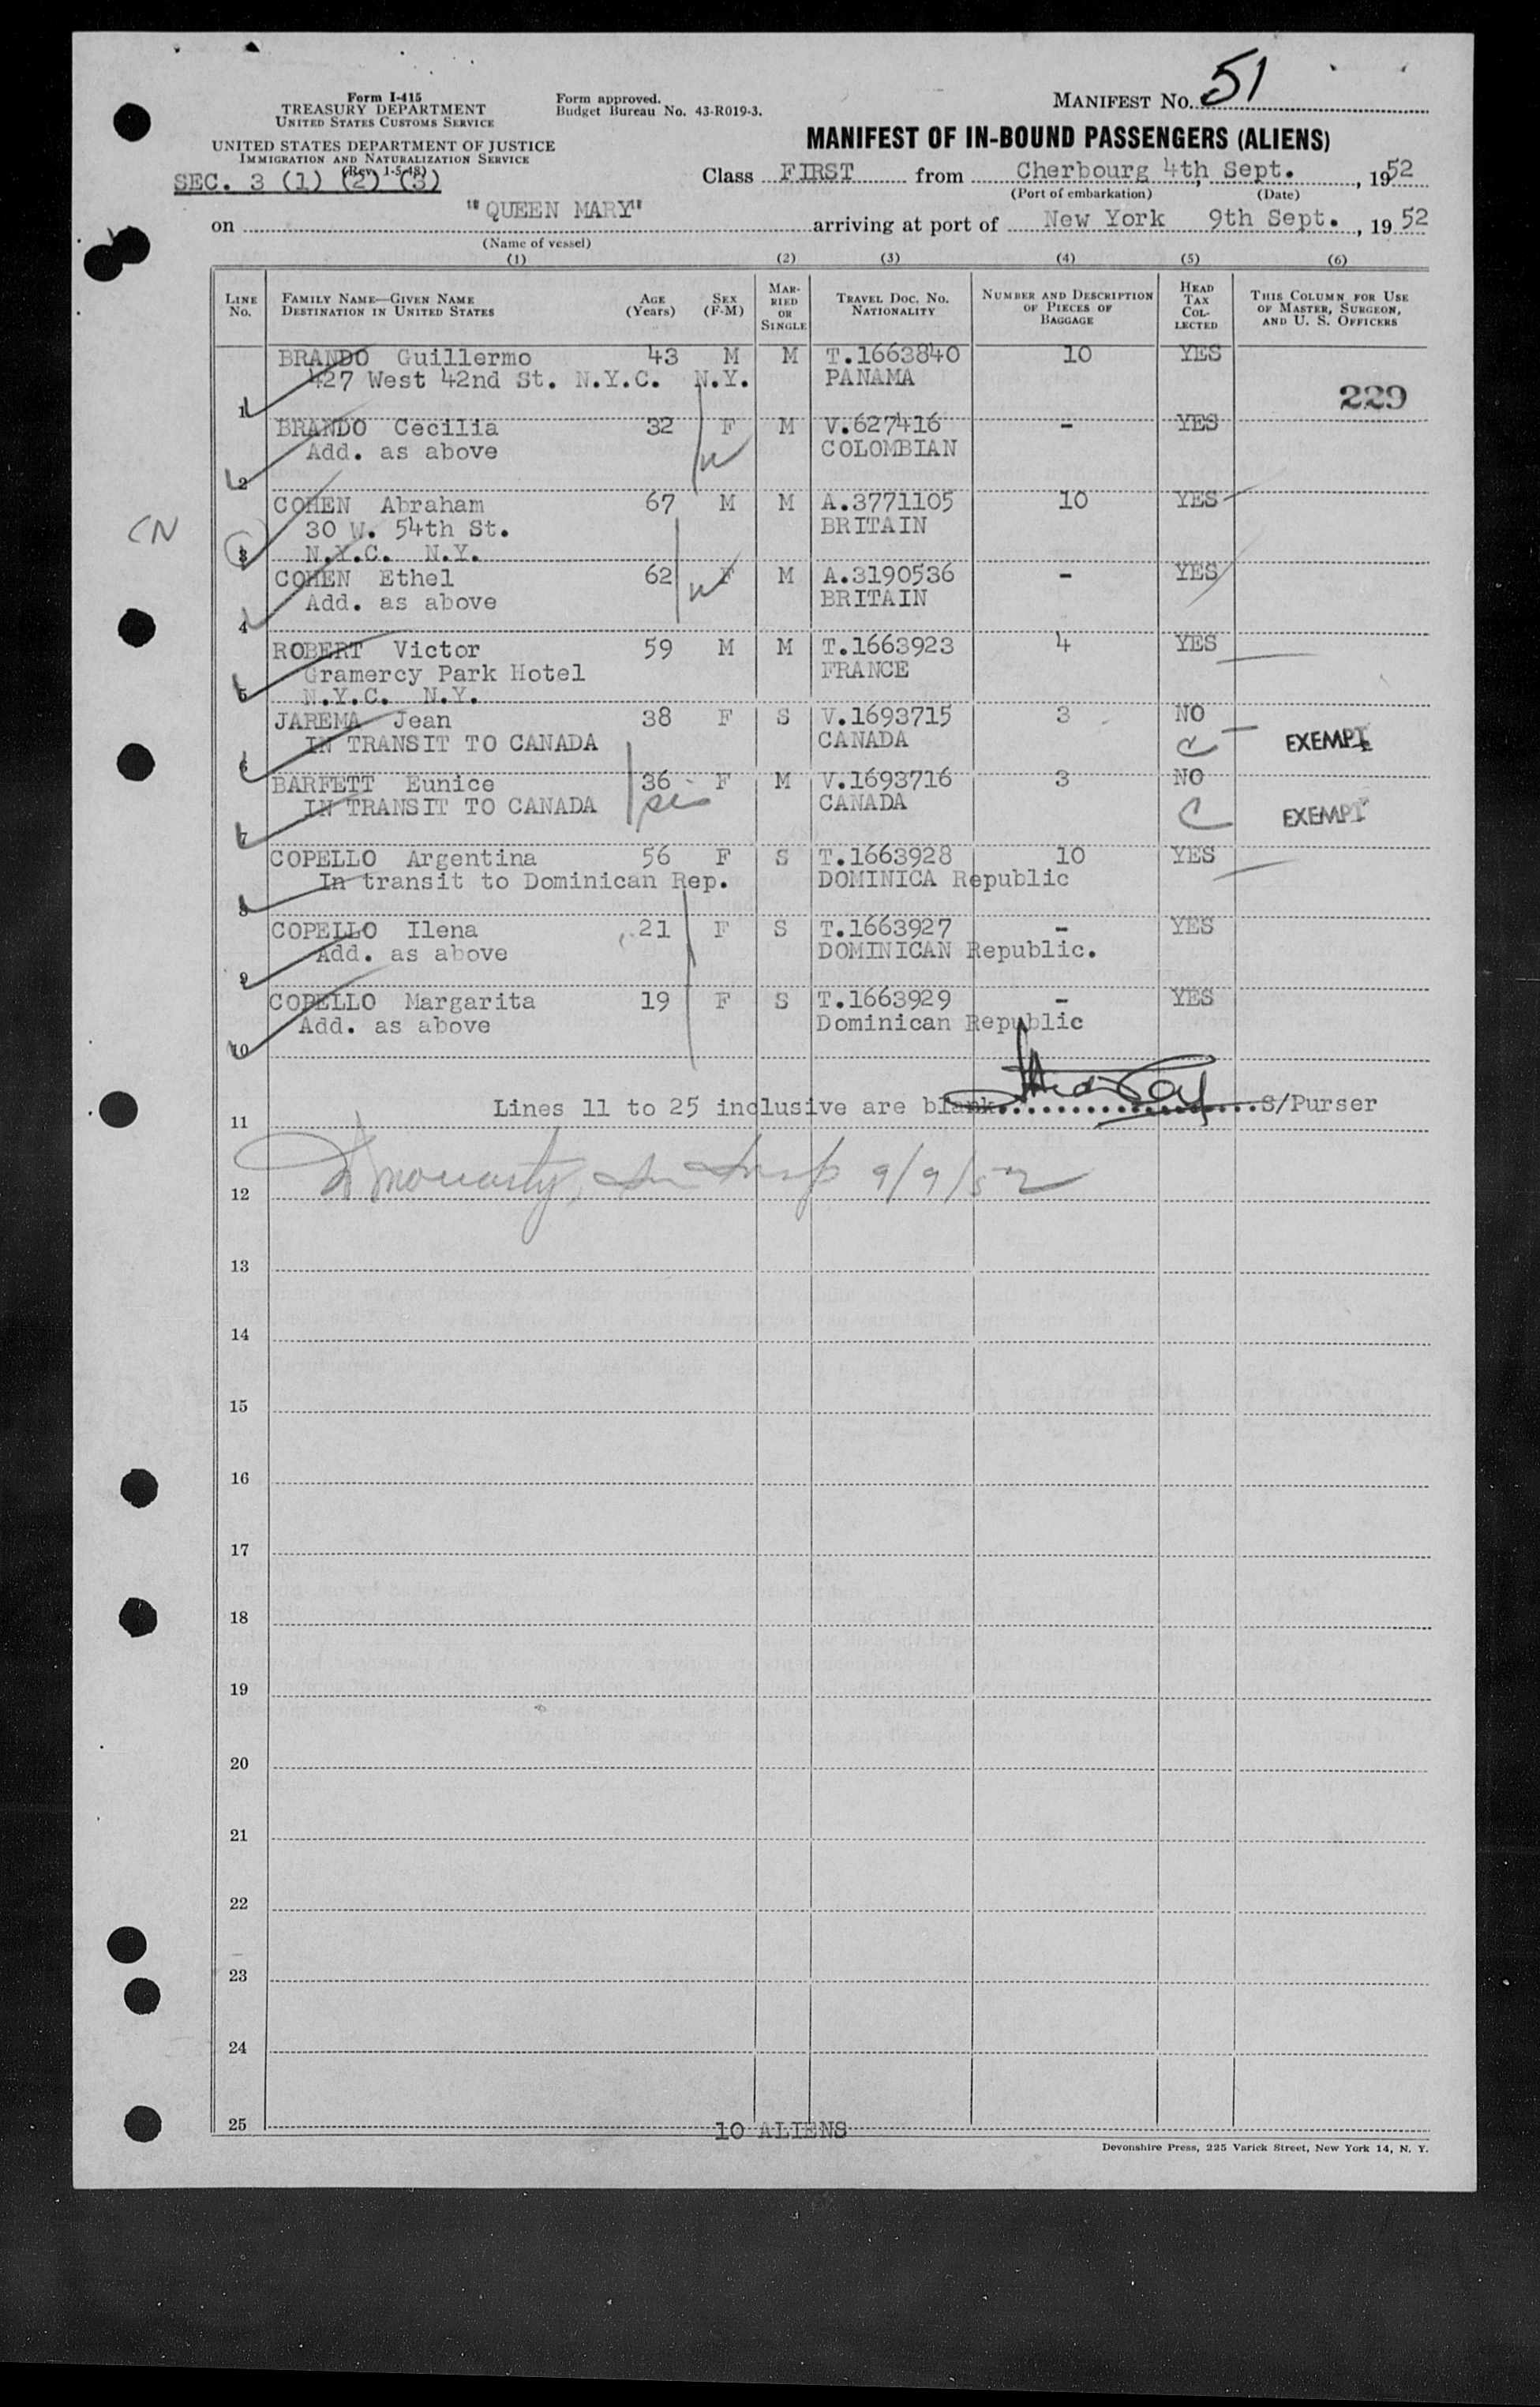 51
Form I-415
TREASURY DEPARTMENT
UNITED STATES CUSTOMS SERVICE
UNITED STATES DEPARTMENT OF JUSTICE
IMMIGRATION AND NATURALIZATION SERVICE
(Rev. 1-5-48)
SEC. 3 (1) (2) (3)
Form approved.
Budget Bureau No. 43-R019-3.
MANIFEST NO.
MANIFEST OF IN-BOUND PASSENGERS (ALIENS)
Class FIRST from Cherbourg 4th Sept. , 1952
(Port of embarkation) (Date)
on "QUEEN MARY" arriving at port of New York 9th Sept. , 1952
(Name of vessel)
(1) (2) (3) (4) (5) (6)
LINE NO. FAMILY NAME—GIVEN NAME DESTINATION IN UNITED STATES AGE (Years) SEX (F-M) MARRIED OR SINGLE TRAVEL DOC. NO. NATIONALITY NUMBER AND DESCRIPTION OF PIECES OF BAGGAGE HEAD TAX COLLECTED THIS COLUMN FOR USE OF MASTER, SURGEON, AND U. S. OFFICERS
BRANDO Guillermo 43 M M T.1663840 10 YES
427 West 42nd St. N.Y.C. N.Y. PANAMA
229
1
BRANDO Cecilia 32 F M V.627416 - YES
Add. as above COLOMBIAN
2
COHEN Abraham 67 M M A.3771105 10 YES
30 W. 54th St. BRITAIN
CN
3 N.Y.C. N.Y.
COHEN Ethel 62 F M A.3190536 - YES
Add. as above BRITAIN
4
ROBERT Victor 59 M M T.1663923 4 YES
Gramercy Park Hotel FRANCE
5 N.Y.C. N.Y.
JAREMA Jean 38 F S V.1693715 3 NO
IN TRANSIT TO CANADA CANADA C EXEMPT
6
BARFETT Eunice 36 F M V.1693716 3 NO
IN TRANSIT TO CANADA CANADA C EXEMPT
7
COPELLO Argentina 56 F S T.1663928 10 YES
In transit to Dominican Rep. DOMINICA Republic
8
COPELLO Ilena 21 F S T.1663927 - YES
Add. as above DOMINICAN Republic.
9
COPELLO Margarita 19 F S T.1663929 - YES
Add. as above Dominican Republic
10
Lines 11 to 25 inclusive are blank. S/Purser
11
9/9/52
12
13
14
15
16
17
18
19
20
21
22
23
24
25
10 ALIENS
Devonshire Press, 225 Varick Street, New York 14, N. Y.